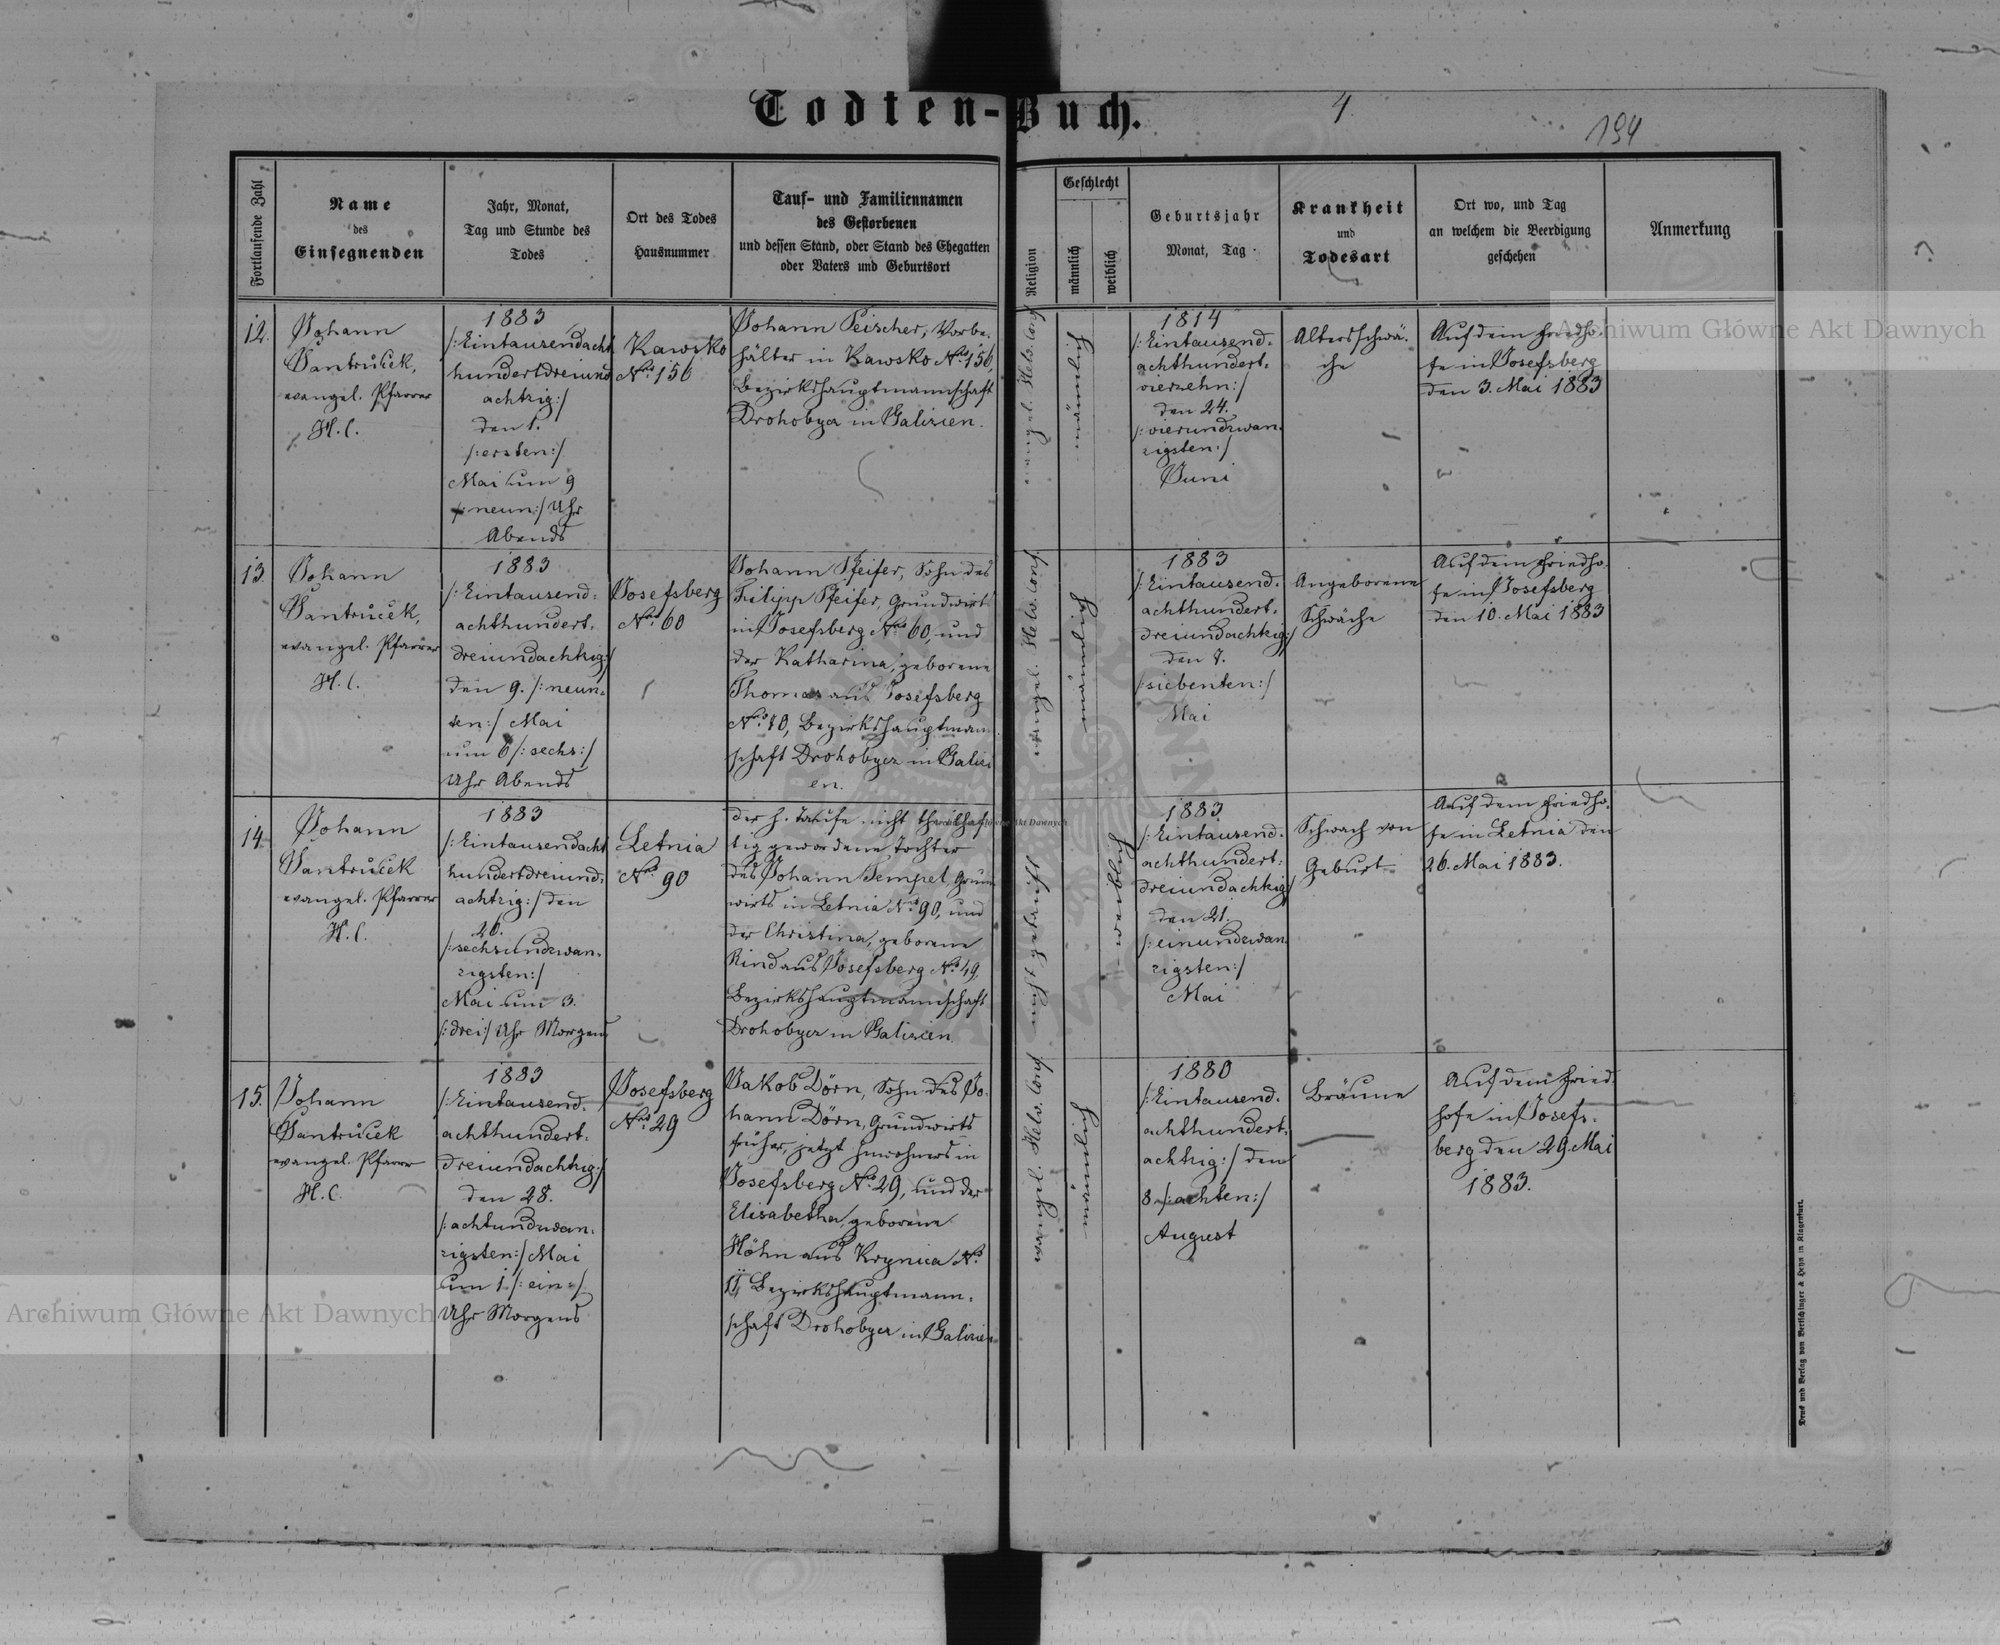 Todten-Buch.
4
194
Fortlaufende Zahl
Name
des
Einsegnenden
Jahr, Monat,
Tag und Stunde des
Todes
Ort des Todes
Hausnummer
Tauf- und Familiennamen
des Gestorbenen
und dessen Stand, oder Stand des Ehegatten
oder Vaters und Geburtsort
Religion
Geschlecht
männlich
weiblich
Geburtsjahr
Monat, Tag
Krankheit
und
Todesart
Ort wo, und Tag
an welchem die Beerdigung
geschehen
Anmerkung
12.
Johann
Jantruček,
evangel. Pfarrer
H. C.
1883
/:Eintausendacht
hundertdreiund
achtzig:/
den 1.
/:ersten:/
Mai um 9
/:neun:/ Uhr
Abends
Kawsko
No. 156
Johann Peischer, Vorbe-
hälter in Kawsko No. 156,
Bezirkshauptmannschaft
Drohobycz in Galizien.
evangel. Helv. Conf.
männlich
1814
/:Eintausend-
achthundert-
vierzehn:/
den 24.
/:vierundzwan-
zigsten:/
Juni
Altersschwä-
che
Auf dem Friedho-
fe in Josefsberg
den 3. Mai 1883
13.
Johann
Jantruček,
evangel. Pfarrer
H. C.
1883
/:Eintausend-
achthundert-
dreiundachtzig:/
den 9. /:neun-
ten:/ Mai
um 6 /:sechs:/
Uhr Abends
Josefsberg
No. 60
Johann Pfeifer, Sohn des
Filipp Pfeifer, Grundwirts
in Josefsberg No. 60, und
der Katharina, geborene
Thomas aus Josefsberg
No. 10, Bezirkshauptman-
schaft Drohobycz in Galizi
en.
evangel. Helv. Conf.
männlich
1883
/:Eintausend-
achthundert-
dreiundachtzig:/
den 7.
/:siebenten:/
Mai
Angeborene
Schwäche
Auf dem Friedho-
fe in Josefsberg
den 10. Mai 1883
14.
Johann
Jantruček
evangel. Pfarrer
H. C.
1883
/:Eintausendacht
hundertdreiund-
achtzig:/ den
26.
/:sechsundzwan-
zigsten:/
Mai um 3.
/:drei:/ Uhr Morgens
Letnia
No. 90
der h. Taufe nicht theilhaf
tig gewordene Tochter
des Johann Tempel, Grund
wirts in Letnia No. 90, und
der Christina, geborene
Rind aus Josefsberg No. 49,
Bezirkshauptmannschaft
Drohobycz in Galizien.
nicht getauft
weiblich
1883
/:Eintausend-
achthundert-
dreiundachtzig:/
den 21.
/:einundzwan-
zigsten:/
Mai
Schwach von
Geburt
Auf dem Friedho-
fe in Letnia den
26. Mai 1883.
15.
Johann
Jantruček
evangel. Pfarrer
H. C.
1883
/:Eintausend-
achthundert-
dreiundachtzig:/
den 28.
/:achtundzwan-
zigsten:/ Mai
um 1 /:ein:/
Uhr Morgens
Josefsberg
No. 29
Jakob Dörn, Sohn des Jo-
hann Dörn, Grundwirts
früher, jetzt Inwohners in
Josefsberg No. 29, und der
Elisabetha, geborene
Höhn aus Krynica No.
Bezirkshauptmann-
schaft Drohobycz in Galizien
evangel. Helv. Conf.
männlich
1880
/:Eintausend-
achthundert-
achtzig:/ den
8. /:achten:/
August
Bräune
Auf dem Fried-
hofe in Josefs-
berg den 29. Mai
1883.
Druck und Verlag von Bertschinger & Heyn in Klagenfurt.
Archiwum Główne Akt Dawnych
Archiwum Główne Akt Dawnych
Archiwum Główne Akt Dawnych